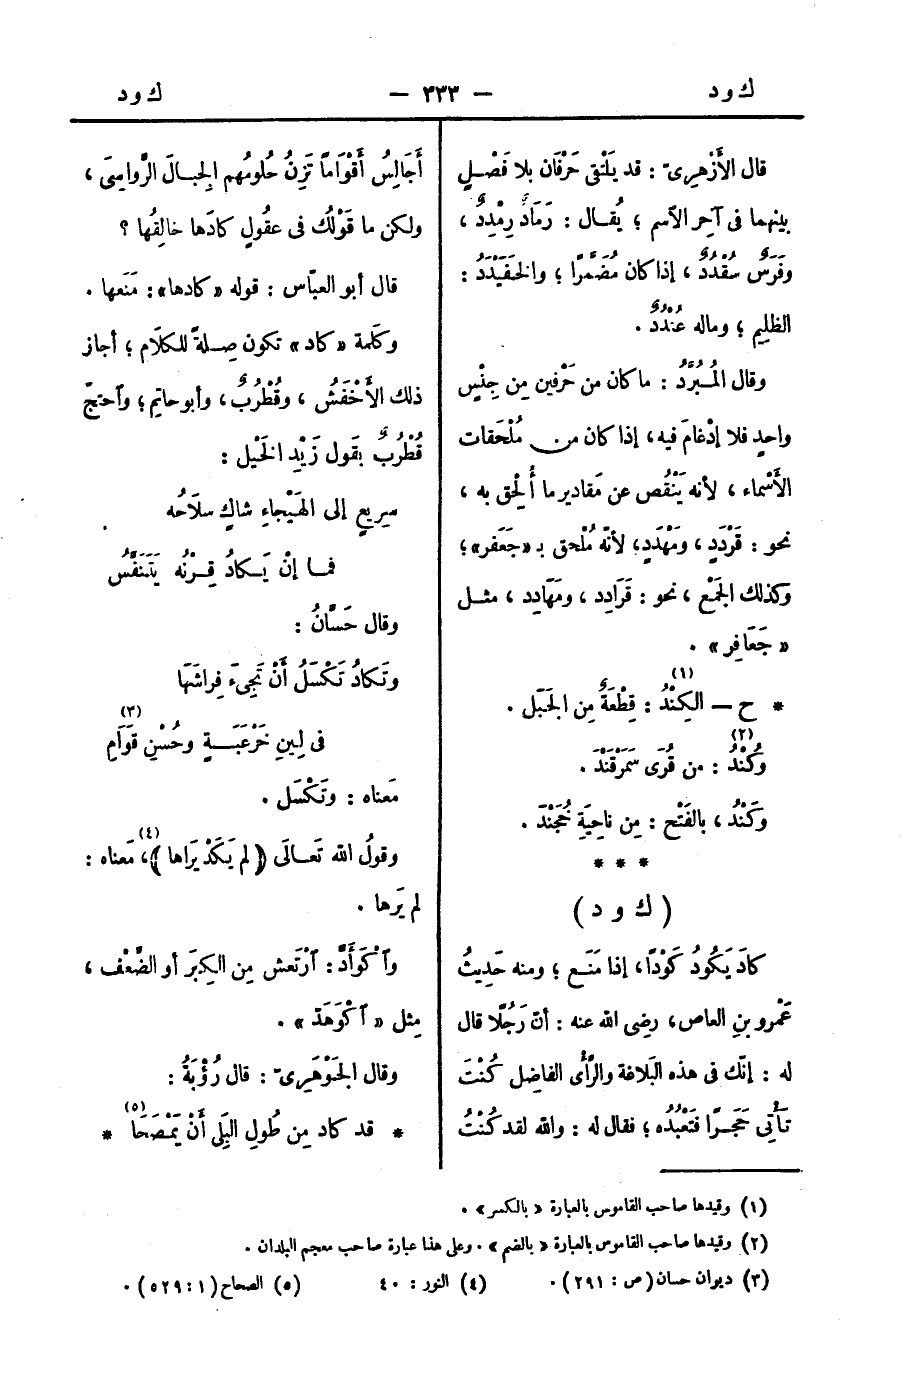 ك ود
— ٣٣٣ —
ك ود
قال الأَزْهرىّ : قد يَلْتقى حَرْفَان بلا فَصْلٍ
بينهما فى آخِر الاسم ؛ يُقال : رَمَادٌ رِمْدِدٌ ،
وفَرَسٌ سُقْدُدٌ ، إذا كان مُضَمَّرًا ؛ والخَفَيْدَدُ :
الظليم ؛ وماله عُنْدُدٌ .
وقال المُبرَّدُ : ما كان من حَرْفين مِن جِنْسٍ
واحدٍ فلا إدْغامَ فيه ، إذا كان من مُلْحَقات
الأَسْماء ، لأنه يَنْقُص عن مَقادير ما أُلْحِق به ،
نحو : قَرْدَدٍ ، ومَهْدَدٍ ، لأنّه مُلْحق بـ «جَعْفر» ؛
وكذلك الجَمْع ، نحو : قَرَادِد ، ومَهَادِد ، مثل
« جَعَافِر » .
* ح — الكِنْدُ (١) : قِطْعَةٌ مِن الجَبَل .
وكُنْدُ (٢) : من قُرَى سَمَرْقَنْدَ .
وكَنْدُ ، بالفَتْح : مِن ناحِيَةِ خُجَنْدَ .
* * *
( ك و د )
كادَ يَكُودُ كَوْدًا ، إذا مَنَع ؛ ومنه حَدِيثُ
عَمْرو بنِ العاص ، رضى الله عنه : أنّ رَجُلًا قال
له : إنّك فى هذه البَلاغة والرَّأْى الفاضِل كُنْتَ
تَأْتِى حَجَرًا فتَعْبُدُه ؛ فقال له : والله لقد كُنْتُ
أَجَالِسُ أَقْوَامًا تَزِنُ حُلومُهم الجبالَ الرَّواسِىَ ،
ولكن ما قَوْلُك فى عقُولٍ كادَها خالِقُها ؟
قال أبو العبّاس : قوله «كادها» : مَنَعها .
وكَلمة «كاد» تكون صِلةً للكلَام ؛ أجاز
ذلك الأَخْفَشُ ، وقُطْرُبٌ ، وأبو حاتِم ؛ واحتجّ
قُطْرُبٌ بقَول زَيْدِ الخَيْل :
سرِيعٍ إلى الهَيْجاءِ شاكٍ سلَاحُه
فما إنْ يَكادُ قِرْنُه يَتَنَفَّسُ
وقال حَسَّانُ :
وتَكادُ تَكْسَلُ أَنْ تَجِىءَ فِراشَهَا
فى لِينِ خَرْعَبَةٍ وحُسْنِ قَوَامِ (٣)
مَعناه : وتَكْسَل .
وقولُ الله تَعالَى ﴿ لم يَكَدْ يَرَاها ﴾ (٤) ، مَعناه :
لم يَرها .
واكْوَأَدَّ : ارْتَعش مِن الكِبَر أو الضَّعْف ،
مِثل « اكْوَهَدّ » .
وقال الجَوْهَرىّ : قال رُؤْبَةُ :
* قد كاد مِن طُولِ البِلَى أَنْ يَمْصَحَا (٥) *
(١) وقيدها صاحب القاموس بالعبارة « بالكسر » .
(٢) وقيدها صاحب القاموس بالعبارة « بالضم » . وعلى هذا عبارة صاحب معجم البلدان .
(٣) ديوان حسان (ص : ٢٩١) . (٤) النور : ٤٠ (٥) الصحاح (١ : ٥٢٩) .